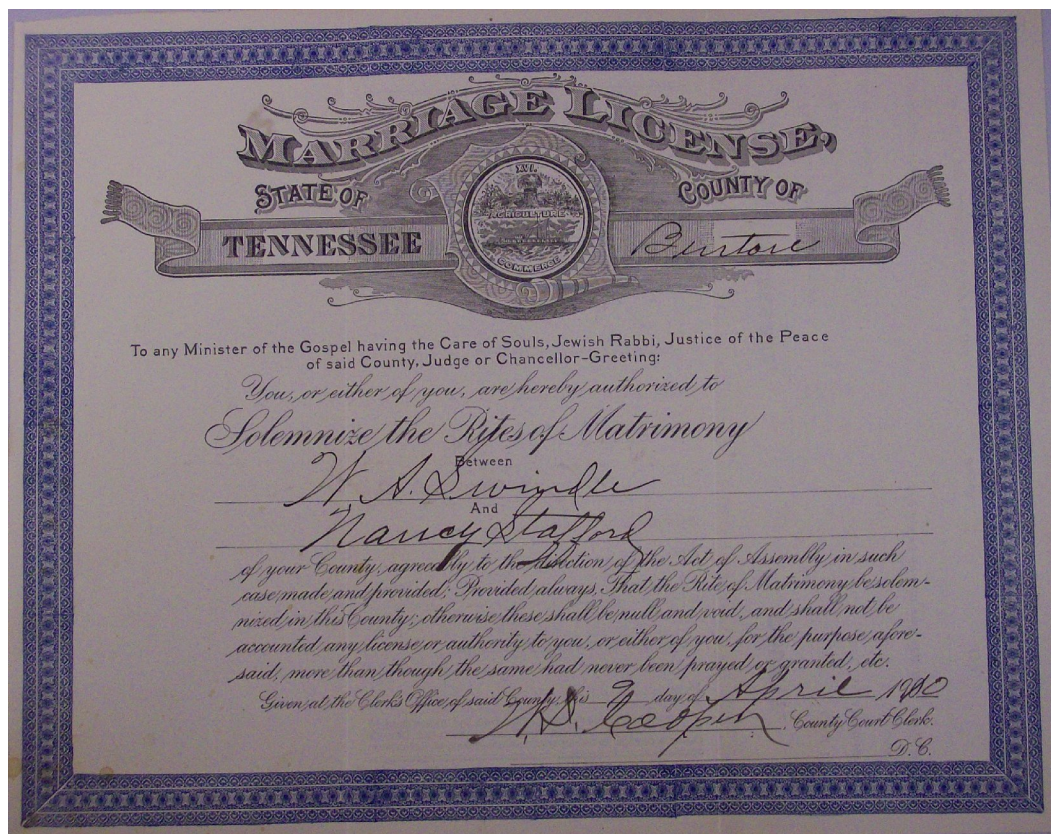 MARRIAGE LICENSE,
STATE OF
COUNTY OF
TENNESSEE
Benton
XVI.
AGRICULTURE
COMMERCE
To any Minister of the Gospel having the Care of Souls, Jewish Rabbi, Justice of the Peace
of said County, Judge or Chancellor-Greeting:
You, or either of you, are hereby authorized to
Solemnize the Rites of Matrimony
Between
W. A. Swindle
And
Nancy Stafford
of your County, agreeably to the direction of the Act of Assembly in such
case made and provided; Provided always, That the Rite of Matrimony be solem-
nized in this County; otherwise these shall be null and void, and shall not be
accounted any license or authority to you, or either of you, for the purpose afore-
said, more than though the same had never been prayed or granted, etc.
Given at the Clerk's Office of said County, this 9 day of April 19
Cooper County Court Clerk.
D. C.